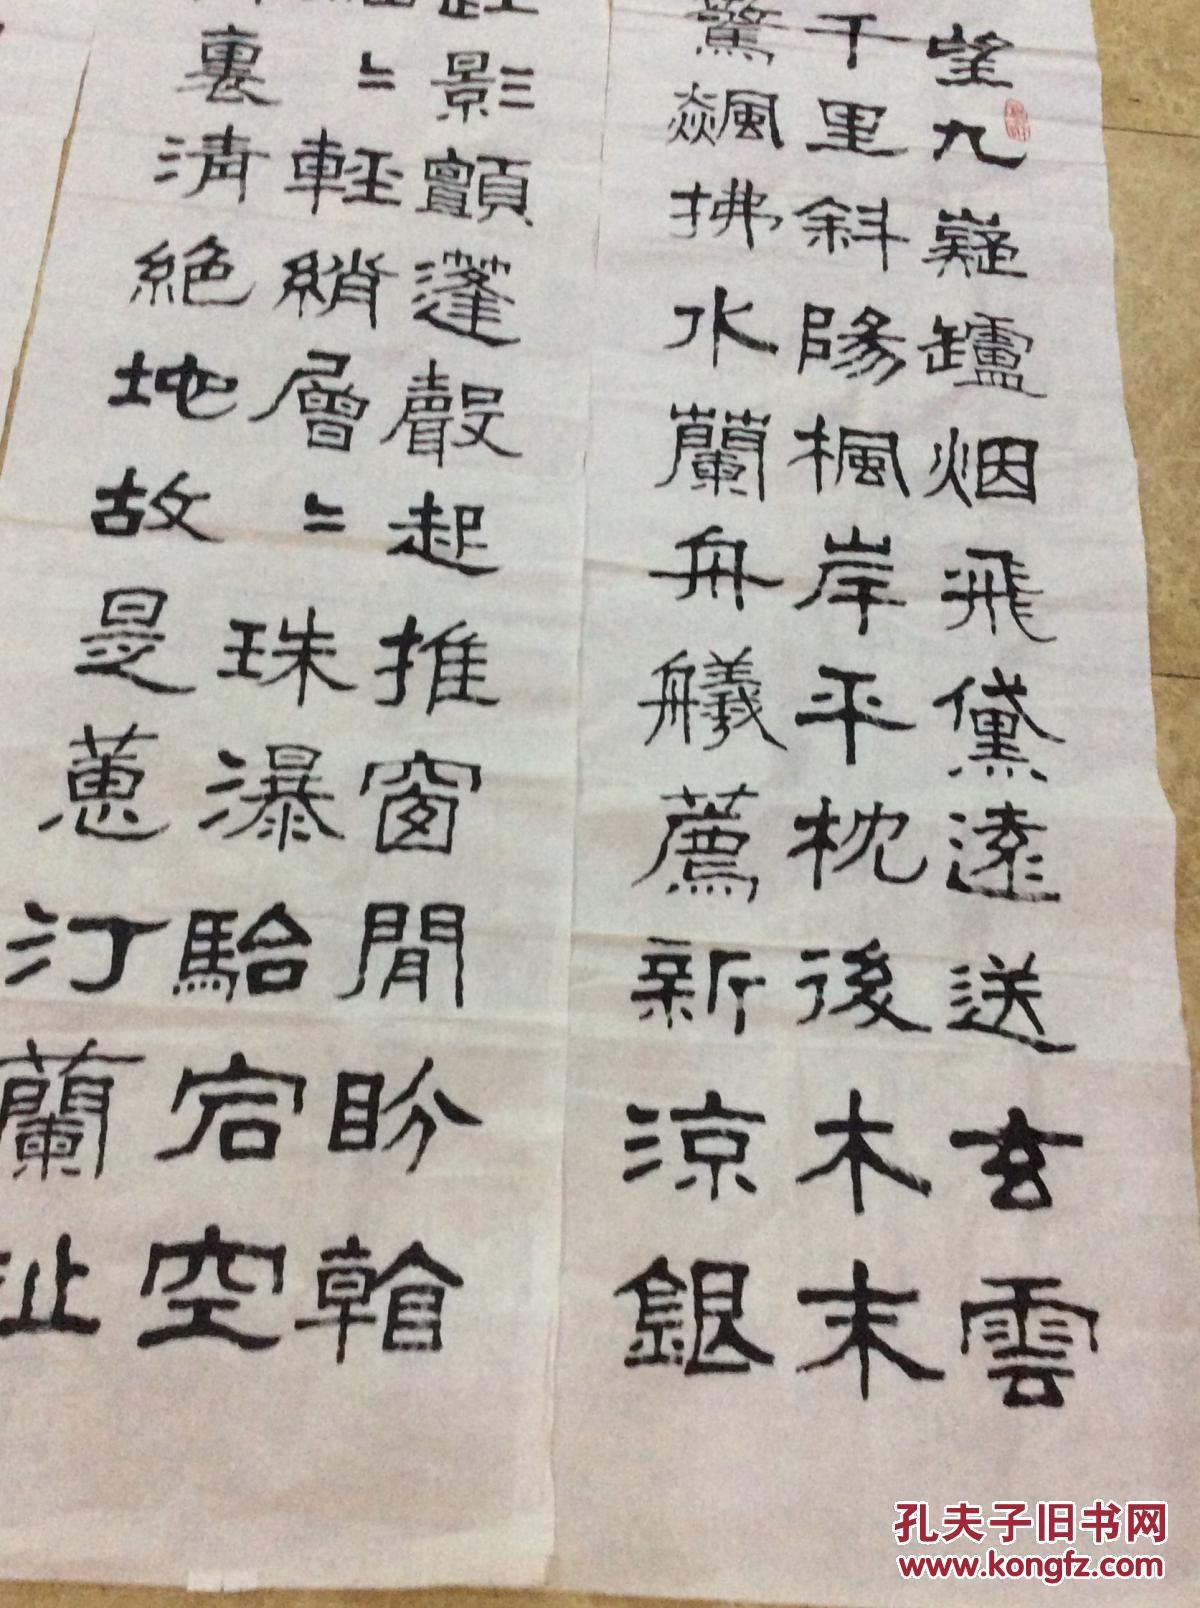 望九嶷罏烟飛黛遠送玄雲
千里斜陽楓岸平枕後木末
驚飆拂水蘭舟艤薦新涼銀
影顫蓬聲起推窗閒盼
輕綃層〻珠瀑駘宕空
裏清絕地故是蕙汀蘭沚
孔夫子旧书网
www.kongfz.com